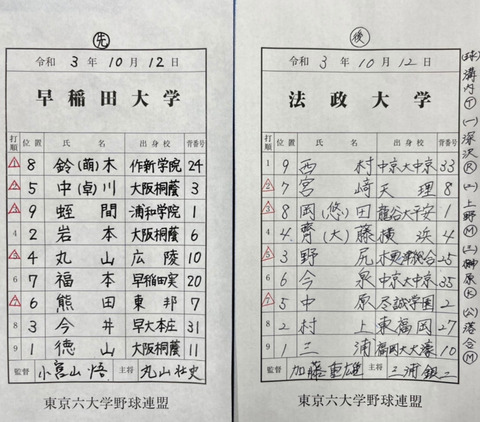 先
令和 3 年 10 月 12 日
早稲田大学
打順 位置 氏 名 出身校 背番号
1 8 鈴(萌)木 作新学院 24
2 5 中(卓)川 大阪桐蔭 3
3 9 蛭間 浦和学院 1
4 2 岩本 大阪桐蔭 6
5 4 丸山 広陵 10
6 7 福本 早稲田実 20
7 6 熊田 東邦 7
8 3 今井 早大本庄 31
9 1 徳山 大阪桐蔭 11
監督 小宮山 悟 主将 丸山壮史
東京六大学野球連盟
後
令和 3 年 10 月 12 日
法政大学
打順 位置 氏 名 出身校 背番号
1 9 西村 中京大中京 33
2 7 宮崎 天理 8
3 8 岡(悠)田 龍谷大平安 1
4 4 齊(大)藤 横浜 4
5 3 野尻 木更津総合 25
6 6 今泉 中京大中京 35
7 5 中原 尽誠学園 2
8 2 村上 東福岡 27
9 1 三浦 福岡大大濠 10
監督 加藤重雄 主将 三浦銀二
東京六大学野球連盟
(球)溝内Ⓣ (一)深沢Ⓚ (二)上野Ⓜ (三)榊原Ⓚ (公)落合Ⓜ